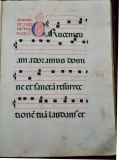 Crucem tu
am adoramus domi
ne et sanctā resurrec
tionē tuā laudam et